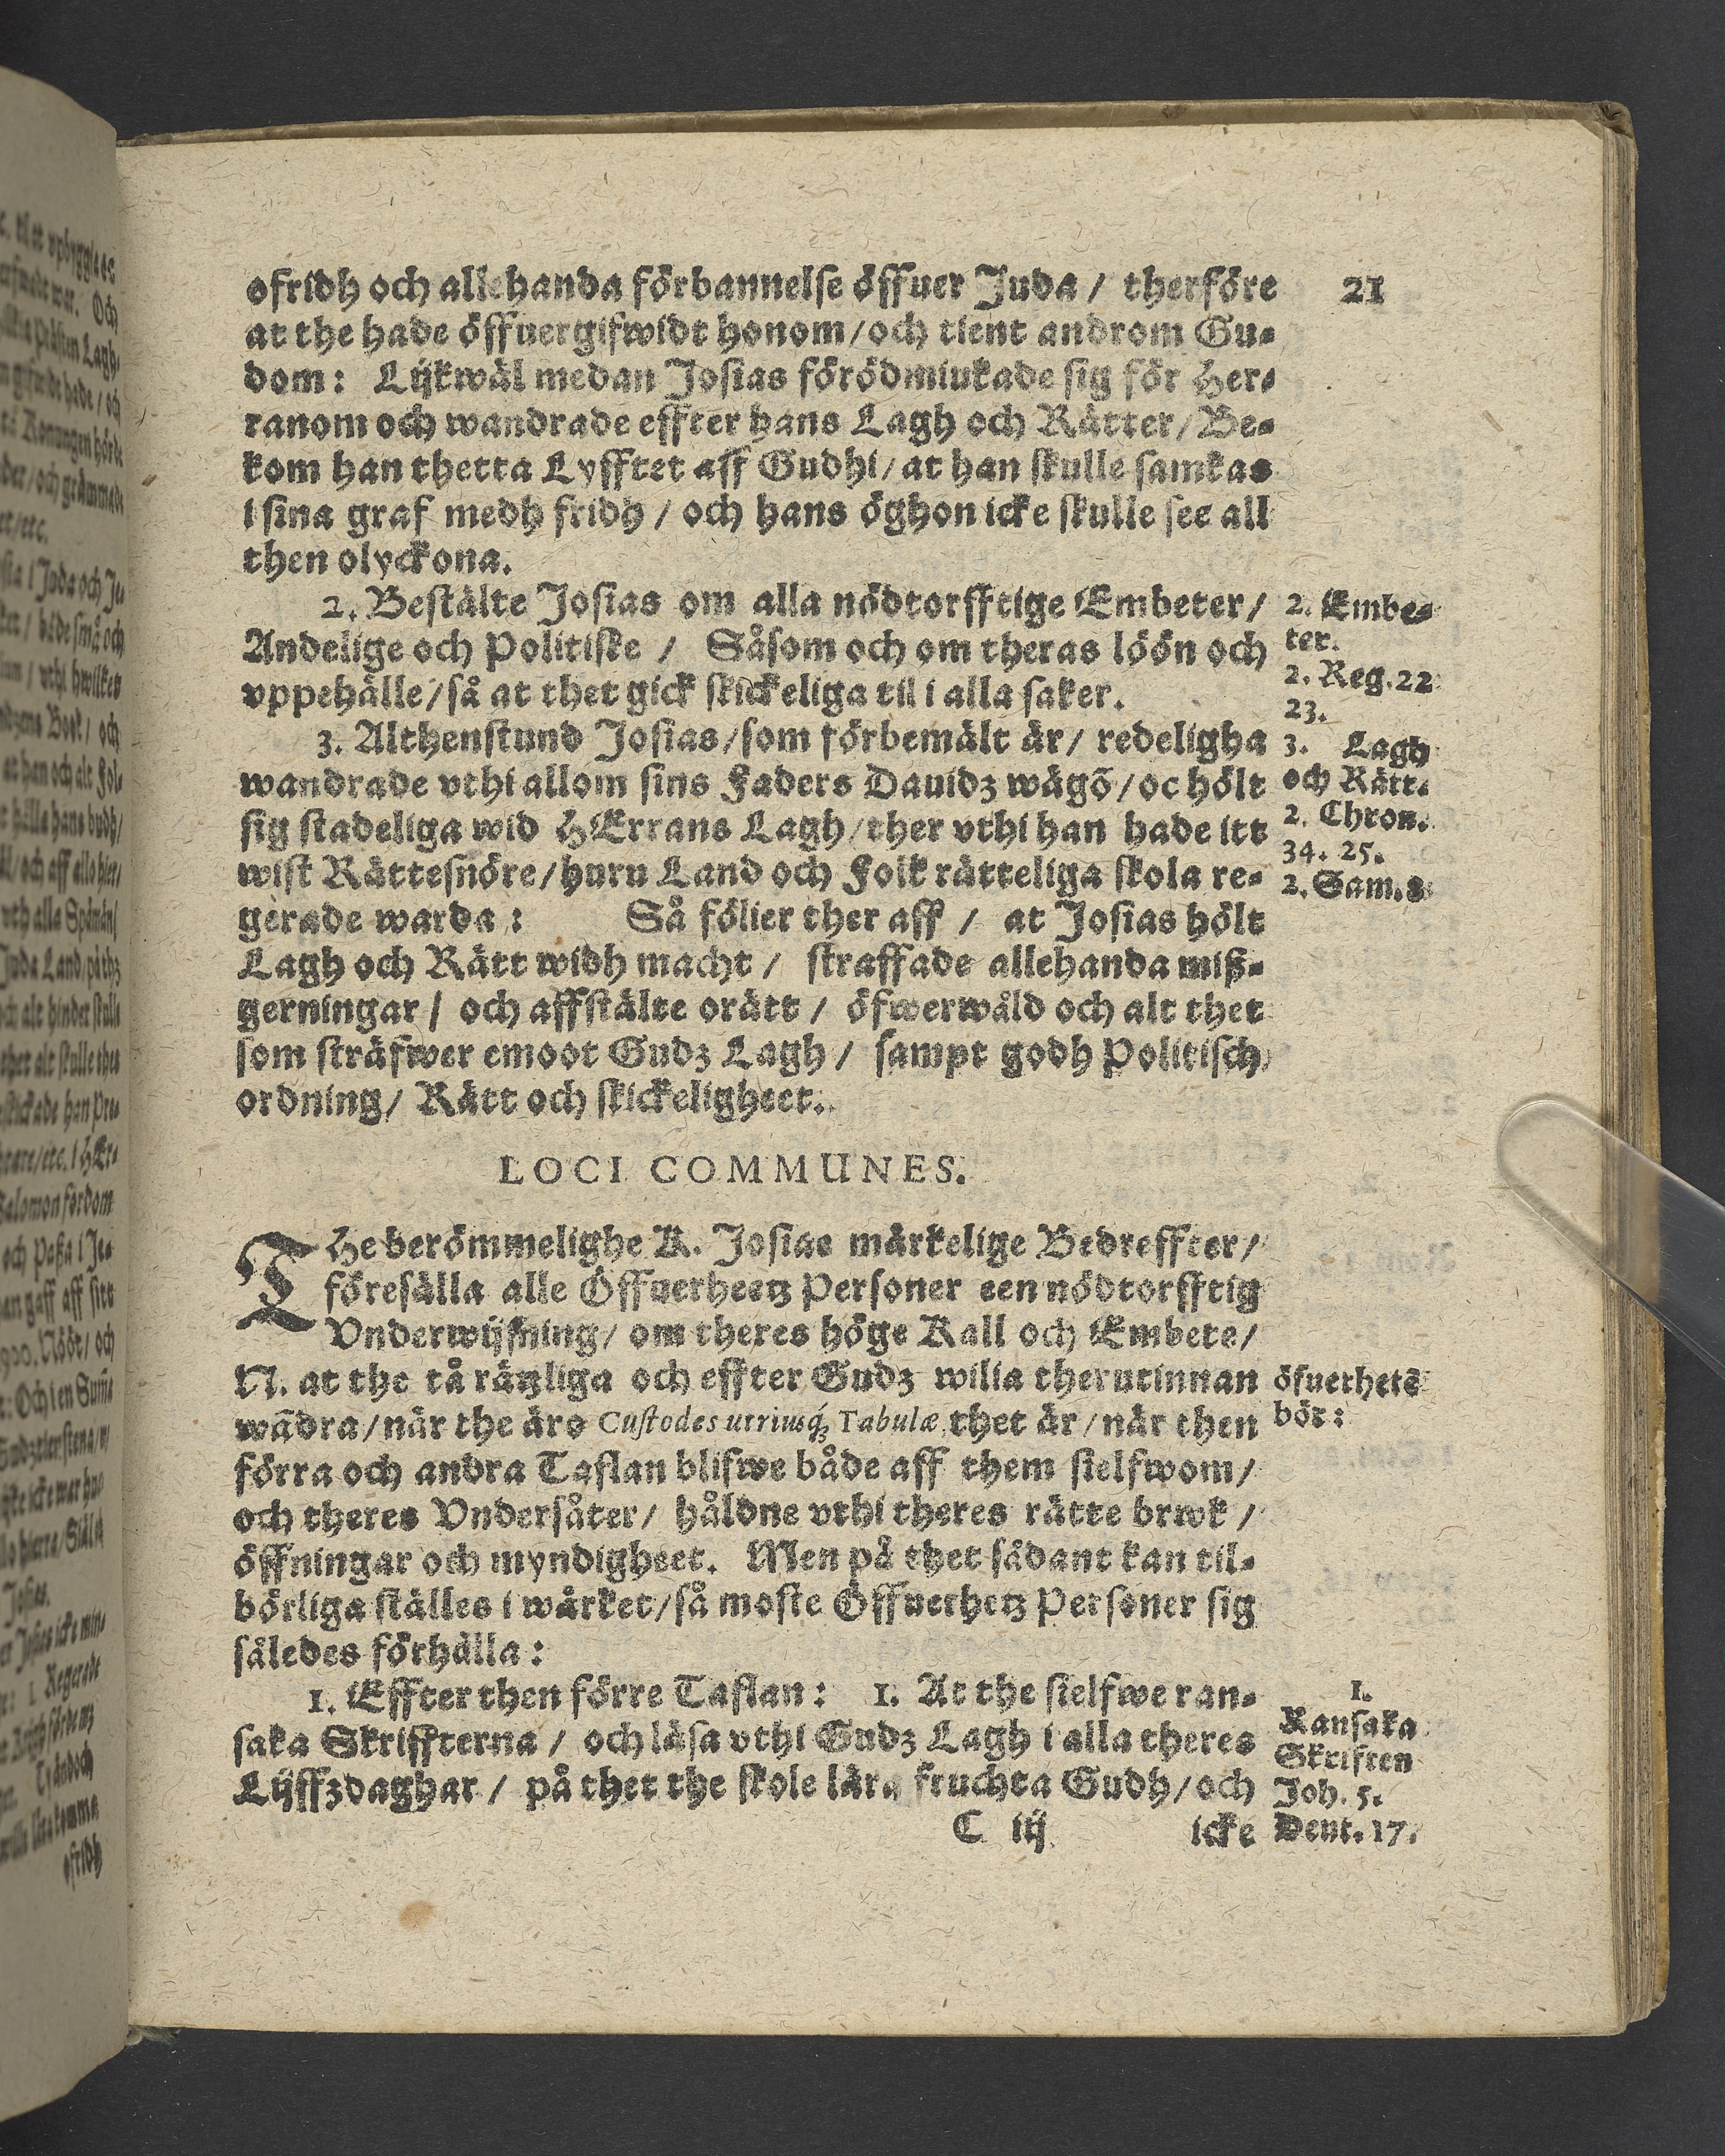 21
ofridh och allehanda förbannelse öffuer Juda / therföre
at the hade öffuergifwidt honom / och tient androm Gu-
dom: Lijkwäl medan Josias förödmiukade sig för Her-
ranom och wandrade effter hans Lagh och Rätter / Be-
kom han thetta Lyfftet aff Gudhi / at han skulle samkas
i sina graf medh fridh / och hans öghon icke skulle see all
then olyckona.
2. Bestälte Josias om alla nödtorfftige Embeter /
Andelige och Politiske / Såsom och om theras löön och
vppehälle / så at thet gick skickeliga til i alla saker.
2. Embe-
ter.
2. Reg. 22
23.
3. Althenstund Josias / som förbemält är / redeligha
wandrade vthi allom sins Faders Dauidz wägō / oc hölt
sig stadeliga wid HErrans Lagh / ther vthi han hade itt
wist Rättesnöre / huru Land och Folk rätteliga skola re-
gerade warda: Så fölier ther aff / at Josias hölt
Lagh och Rätt widh macht / straffade allehanda miß-
gerningar / och affstälte orätt / öfwerwåld och alt thet
som sträfwer emoot Gudz Lagh / sampt godh Politisch
ordning / Rätt och skickeligheet.
3. Lagh
och Rätt.
2. Chron.
34. 25.
2. Sam. 8
LOCI COMMUNES.
THe berömmelighe K. Josiae märkelige Bedreffter /
föresälla alle Öffuerheetz Personer een nödtorfftig
Vnderwijsning / om theres höge Kall och Embete /
N. at the tå rätzliga och effter Gudz wilia therutinnan
wādra / när the äre Custodes utriusq́; Tabulæ, thet är / när then
förra och andra Taflan blifwe både aff them sielfwom /
och theres Vndersåter / håldne vthi theres rätte brwk /
öffningar och myndigheet. Men på thet sådant kan til-
börliga ställes i wärket / så moste Öffuerhetz Personer sig
således förhälla:
öfuerhets
bör:
1. Effter then förre Taflan: 1. At the sielfwe ran-
saka Skriffterna / och läsa vthi Gudz Lagh i alla theres
Lijffzdaghar / på thet the skole lära fruchta Gudh / och
1.
Ransaka
Skriften
Joh. 5.
Deut. 17.
C iij icke